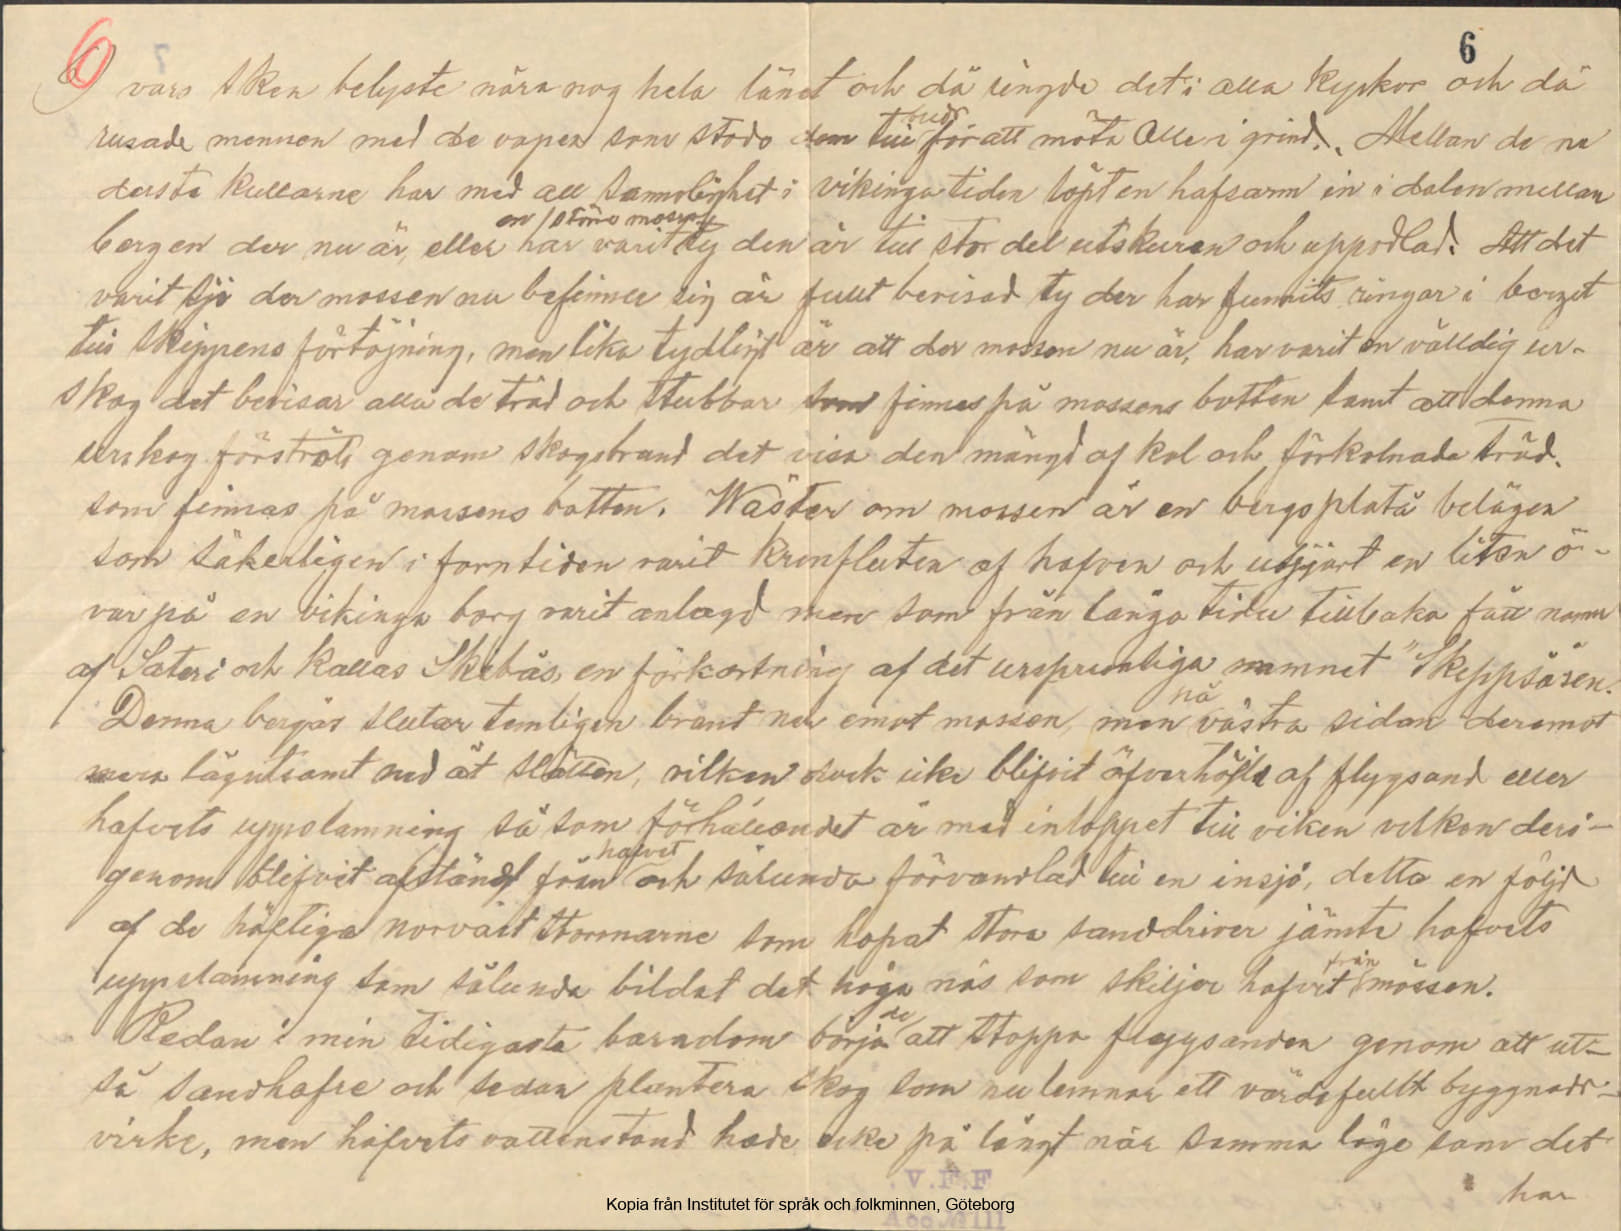 6
6
vars sken belyste nära nog hela länet och då ringde det i alla kyrkor och då
rusade mennen med de vapen som stodo dem till buds för att möta Olle i grind. Mellan de nu
dersta kullarne har med all sannolighet i vikingatiden löpt en hafsarm in i dalen mellan
bergen der nu är, eller har varit en större mosse ty den är till stor del utskuren och uppodlad. Att det
varit sjö der mossen nu befinner sig är fullt bevisad ty der har funnits ringar i berget
till skeppens förtöjning, men lika tydligt är att der mossen nu är, har varit en välldig ur-
skog det bevisar alla de träd och stubbar som finnes på mossens botten samt att denna
urskog förströts genom skogsbrand det visa den mängd af kol och förkolnade träd
som finnas på mossens botten. Wäster om mossen är en bergsplatå belägen
som säkerligen i forntiden varit kringfluten af hafven och utgjort en liten ö-
var på en vikinga borg varit anlagd men som från långa tider tillbaka fått namn
af Säteri och kallas Skebås, en förkortning af det ursprunliga namnet "Skeppsåsen.
Denna bergås slutar temligen brant ner emot mossen, men på västra sidan deremot
mera lågutsamt ned åt slätten, vilken dock icke blifvit öfverhöljd af flygsand eller
hafvets uppslamning så som förhållandet är med inloppet till viken vilken deri-
genom blifvit afstängd från hafvet och sålunda förvandlad till en insjö, detta en följd
af de häftiga norväst stormarne som hopat stora sanddriver jämte hafvets
uppslamning som sålunda bildat det höga näs som skiljer hafvet från mossen.
Redan i min tidigaste barndom började att stoppa flygsanden genom att ut-
så sandhafre och sedan plantera skog som nu lemnar ett värdefullt byggnads-
virke, men hafvets vattenstånd hade icke på långt när samma läge som det
har
V.F.F
Kopia från Institutet för språk och folkminnen, Göteborg